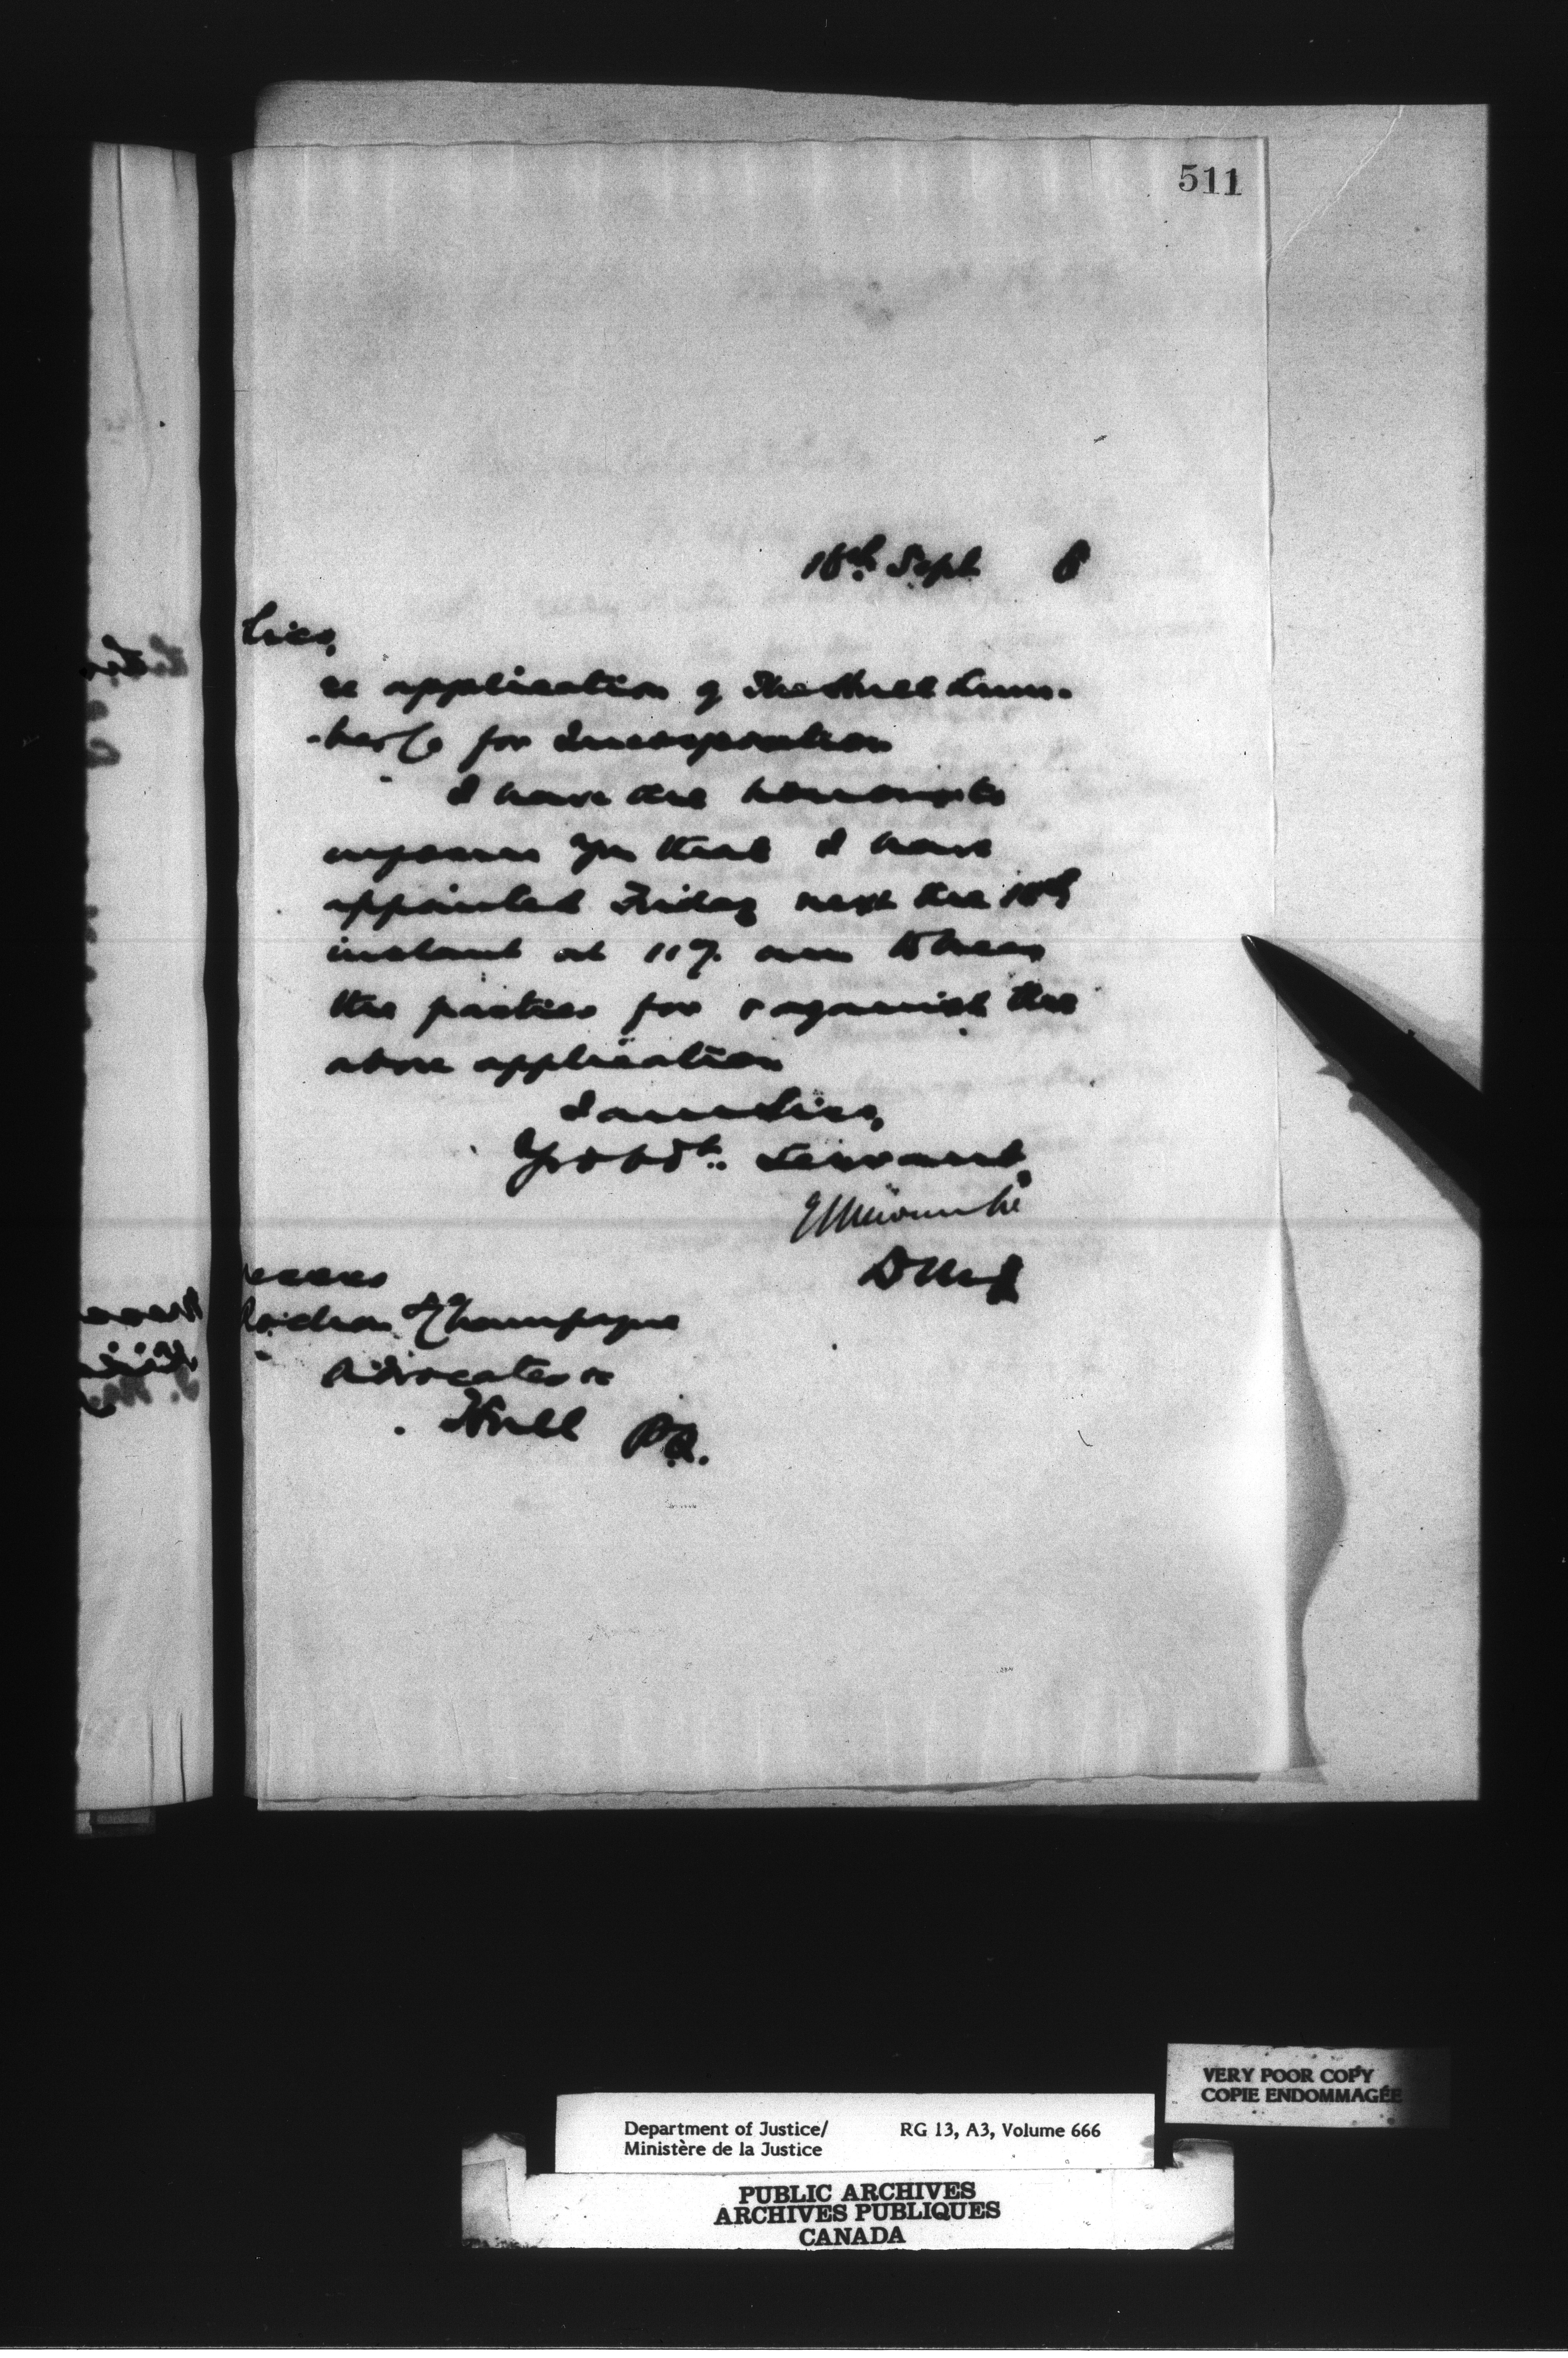 511
Sept 8
Sirs,
re application of The Hull Lum-
-ber Co for Incorporation
I have the honour to
inform you that I have
appointed Friday next the 18th
instant at 11 am to hear
the parties for & against the
above application
I am Sirs,
Yr obdt. Servant,
E L Newcombe
D M of J
Messrs
Rochon & Champagne
Advocates &c
Hull P.Q.
VERY POOR COPY
COPIE ENDOMMAGÉE
Department of Justice/ RG 13, A3, Volume 666
Ministère de la Justice
PUBLIC ARCHIVES
ARCHIVES PUBLIQUES
CANADA